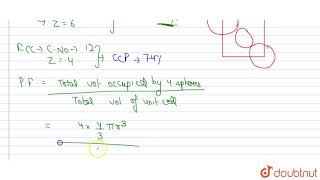 Z = 6
FCC → C.No → 12
Z = 4 → CCP → 74%
P.F. = Total vol occupied by 4 spheres
Total vol of unit cell
= 4 × 4/3 πr³
doubtnut